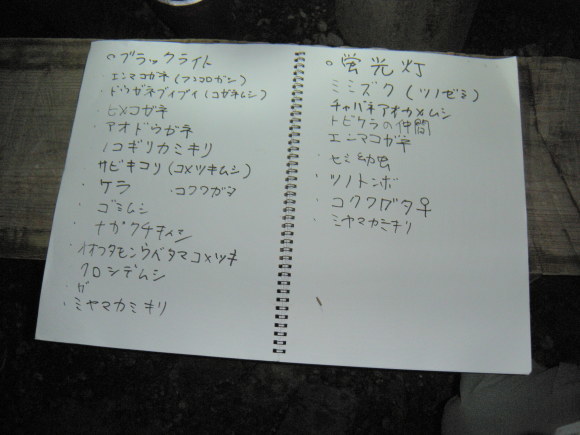 ○ブラックライト
エンマコガネ(フンコロガシ)
・ドウガネブイブイ(コガネムシ)
・ヒメコガネ
・アオドウガネ
・ノコギリカミキリ
サビキコリ(コメツキムシ)
・ケラ ・コクワガタ
・ゴミムシ
・ナガクチキムシ
・オオフタモンウバタマコメツキ
クロシデムシ
・ガ
・ミヤマカミキリ
○蛍光灯
ミミズク(ツノゼミ)
チャバネアオカメムシ
トビケラの仲間
エンマコガネ
・セミ幼虫
・ツノトンボ
・コクワガタ♀
・ミヤマカミキリ